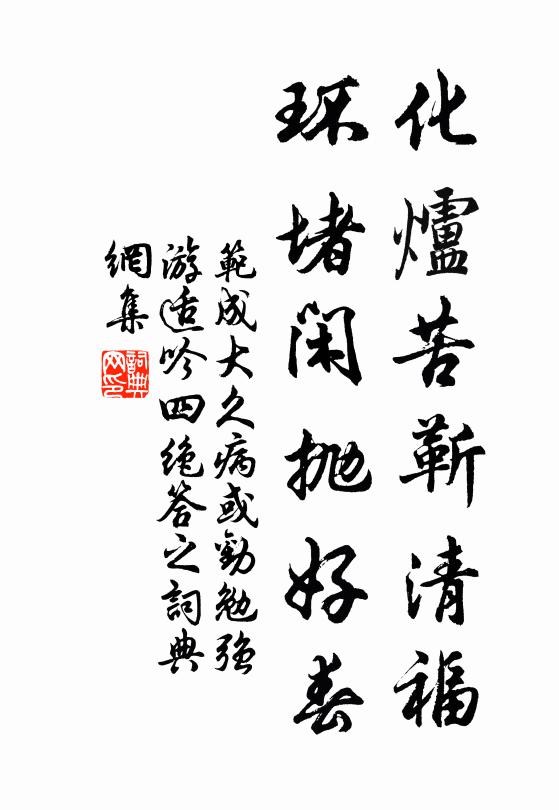 化爐苦靳清福
环堵閑抛好春
範成大久病或勸勉強
游适吟四绝答之詞典
網集
詞典网印